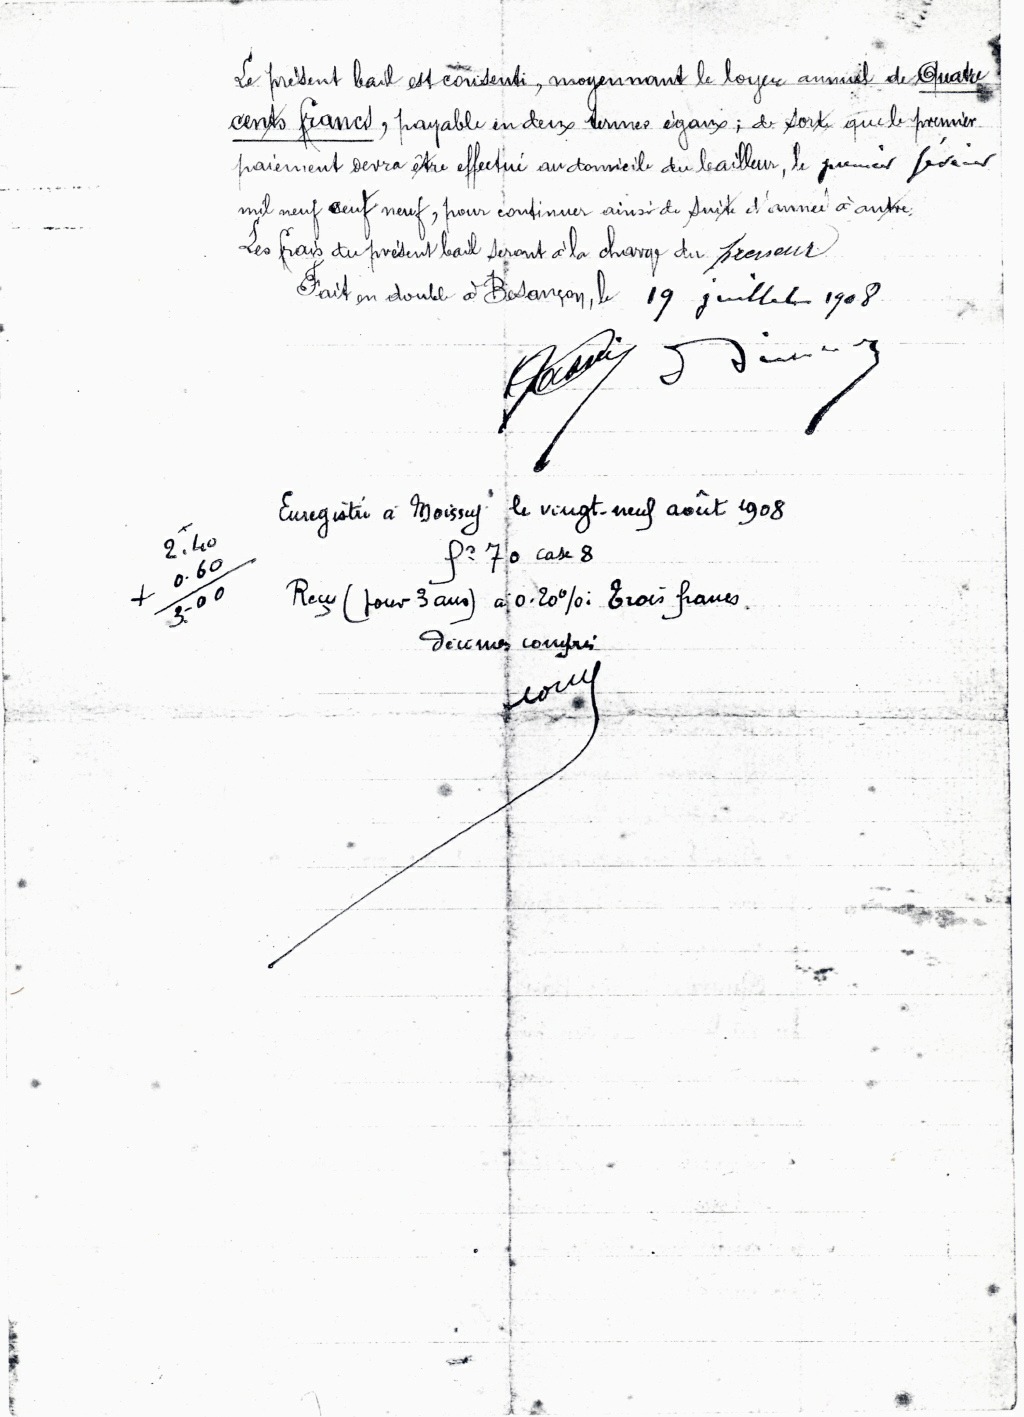 Le présent bail est consenti, moyennant le loyer annuel de Quatre
cents francs, payable en deux termes égaux; de sorte que le premier
paiement devra être effectué au domicile du bailleur, le premier février
mil neuf cent neuf, pour continuer ainsi de suite d'année à autre.
Les frais du présent bail seront à la charge du preneur
Fait en double à Besançon, le 19 juillet 1908
Enregistré à Moissey le vingt-neuf août 1908
2.40
f° 70 case 8
0.60
+
3.00
Reçu (pour 3 ans) à 0.20 % Trois francs.
décimes compris